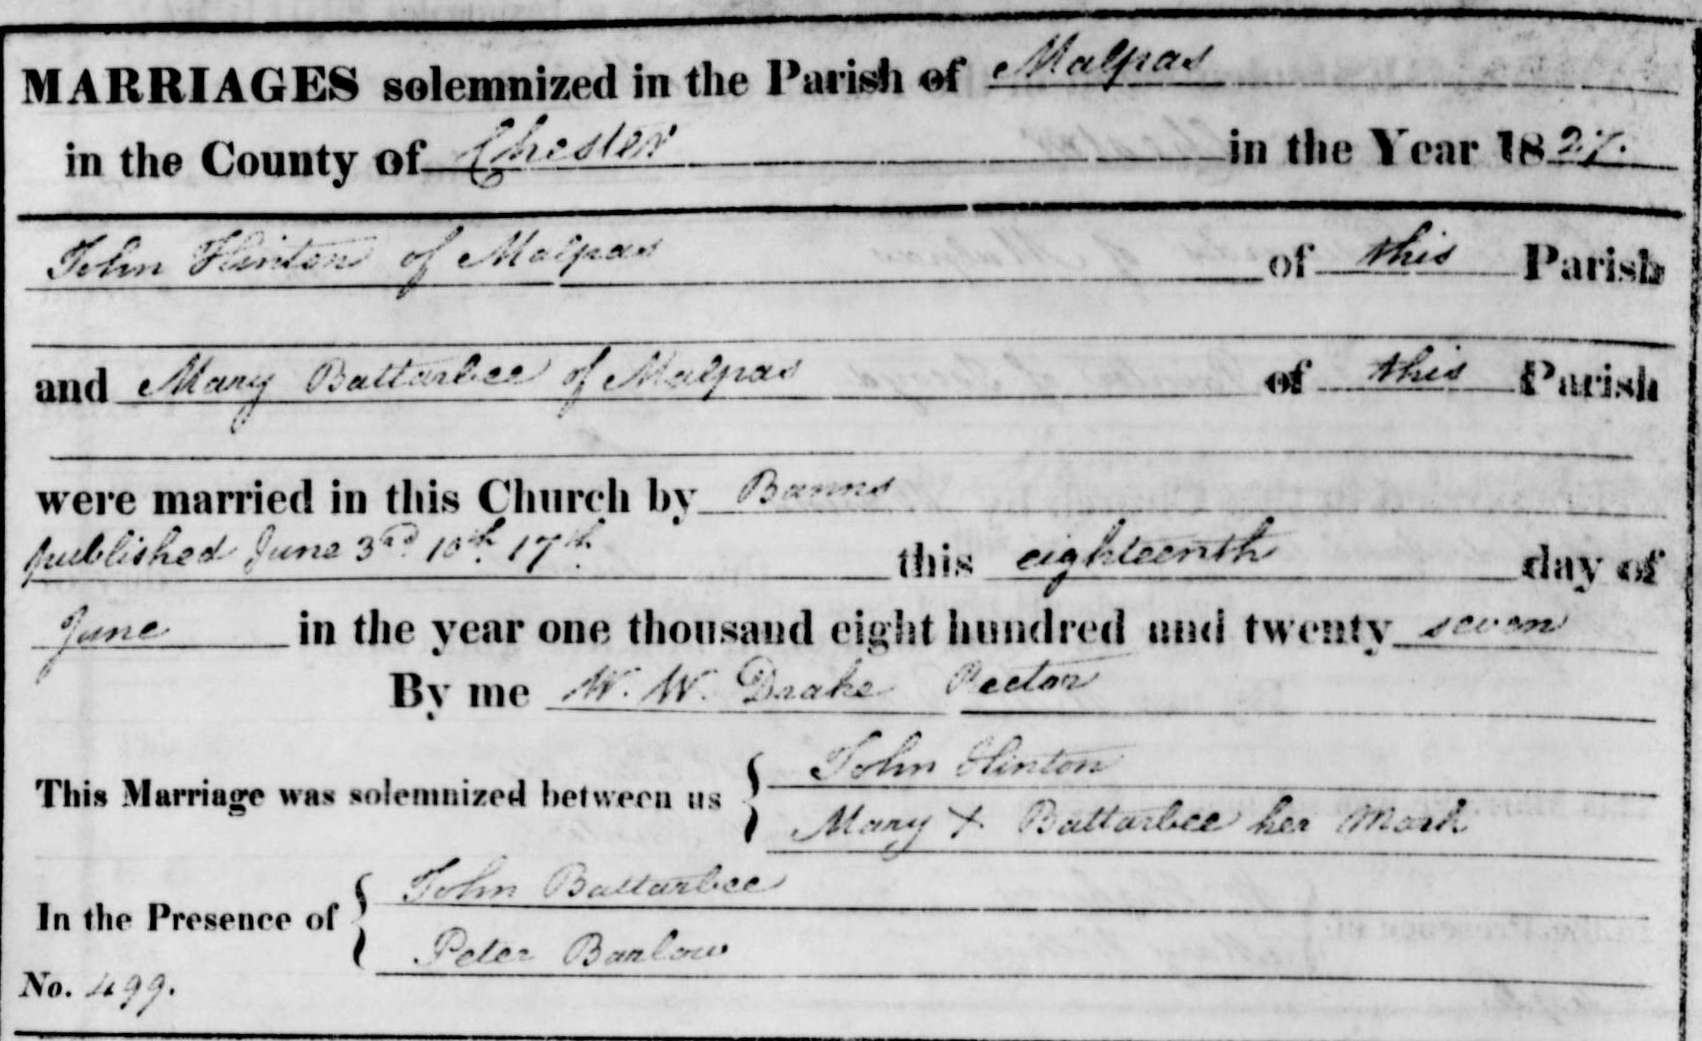 MARRIAGES solemnized in the Parish of Malpas
in the County of Chester in the Year 1827.
John Hinton of Malpas of this Parish
and Mary Battarbee of Malpas of this Parish
were married in this Church by Banns
published June 3rd 10th 17th this eighteenth day of
June in the year one thousand eight hundred and twenty seven
By me W. W. Drake Rector
This Marriage was solemnized between us { John Hinton
Mary X Battarbee her Mark
In the Presence of { John Battarbee
Peter Barlow
No. 499.